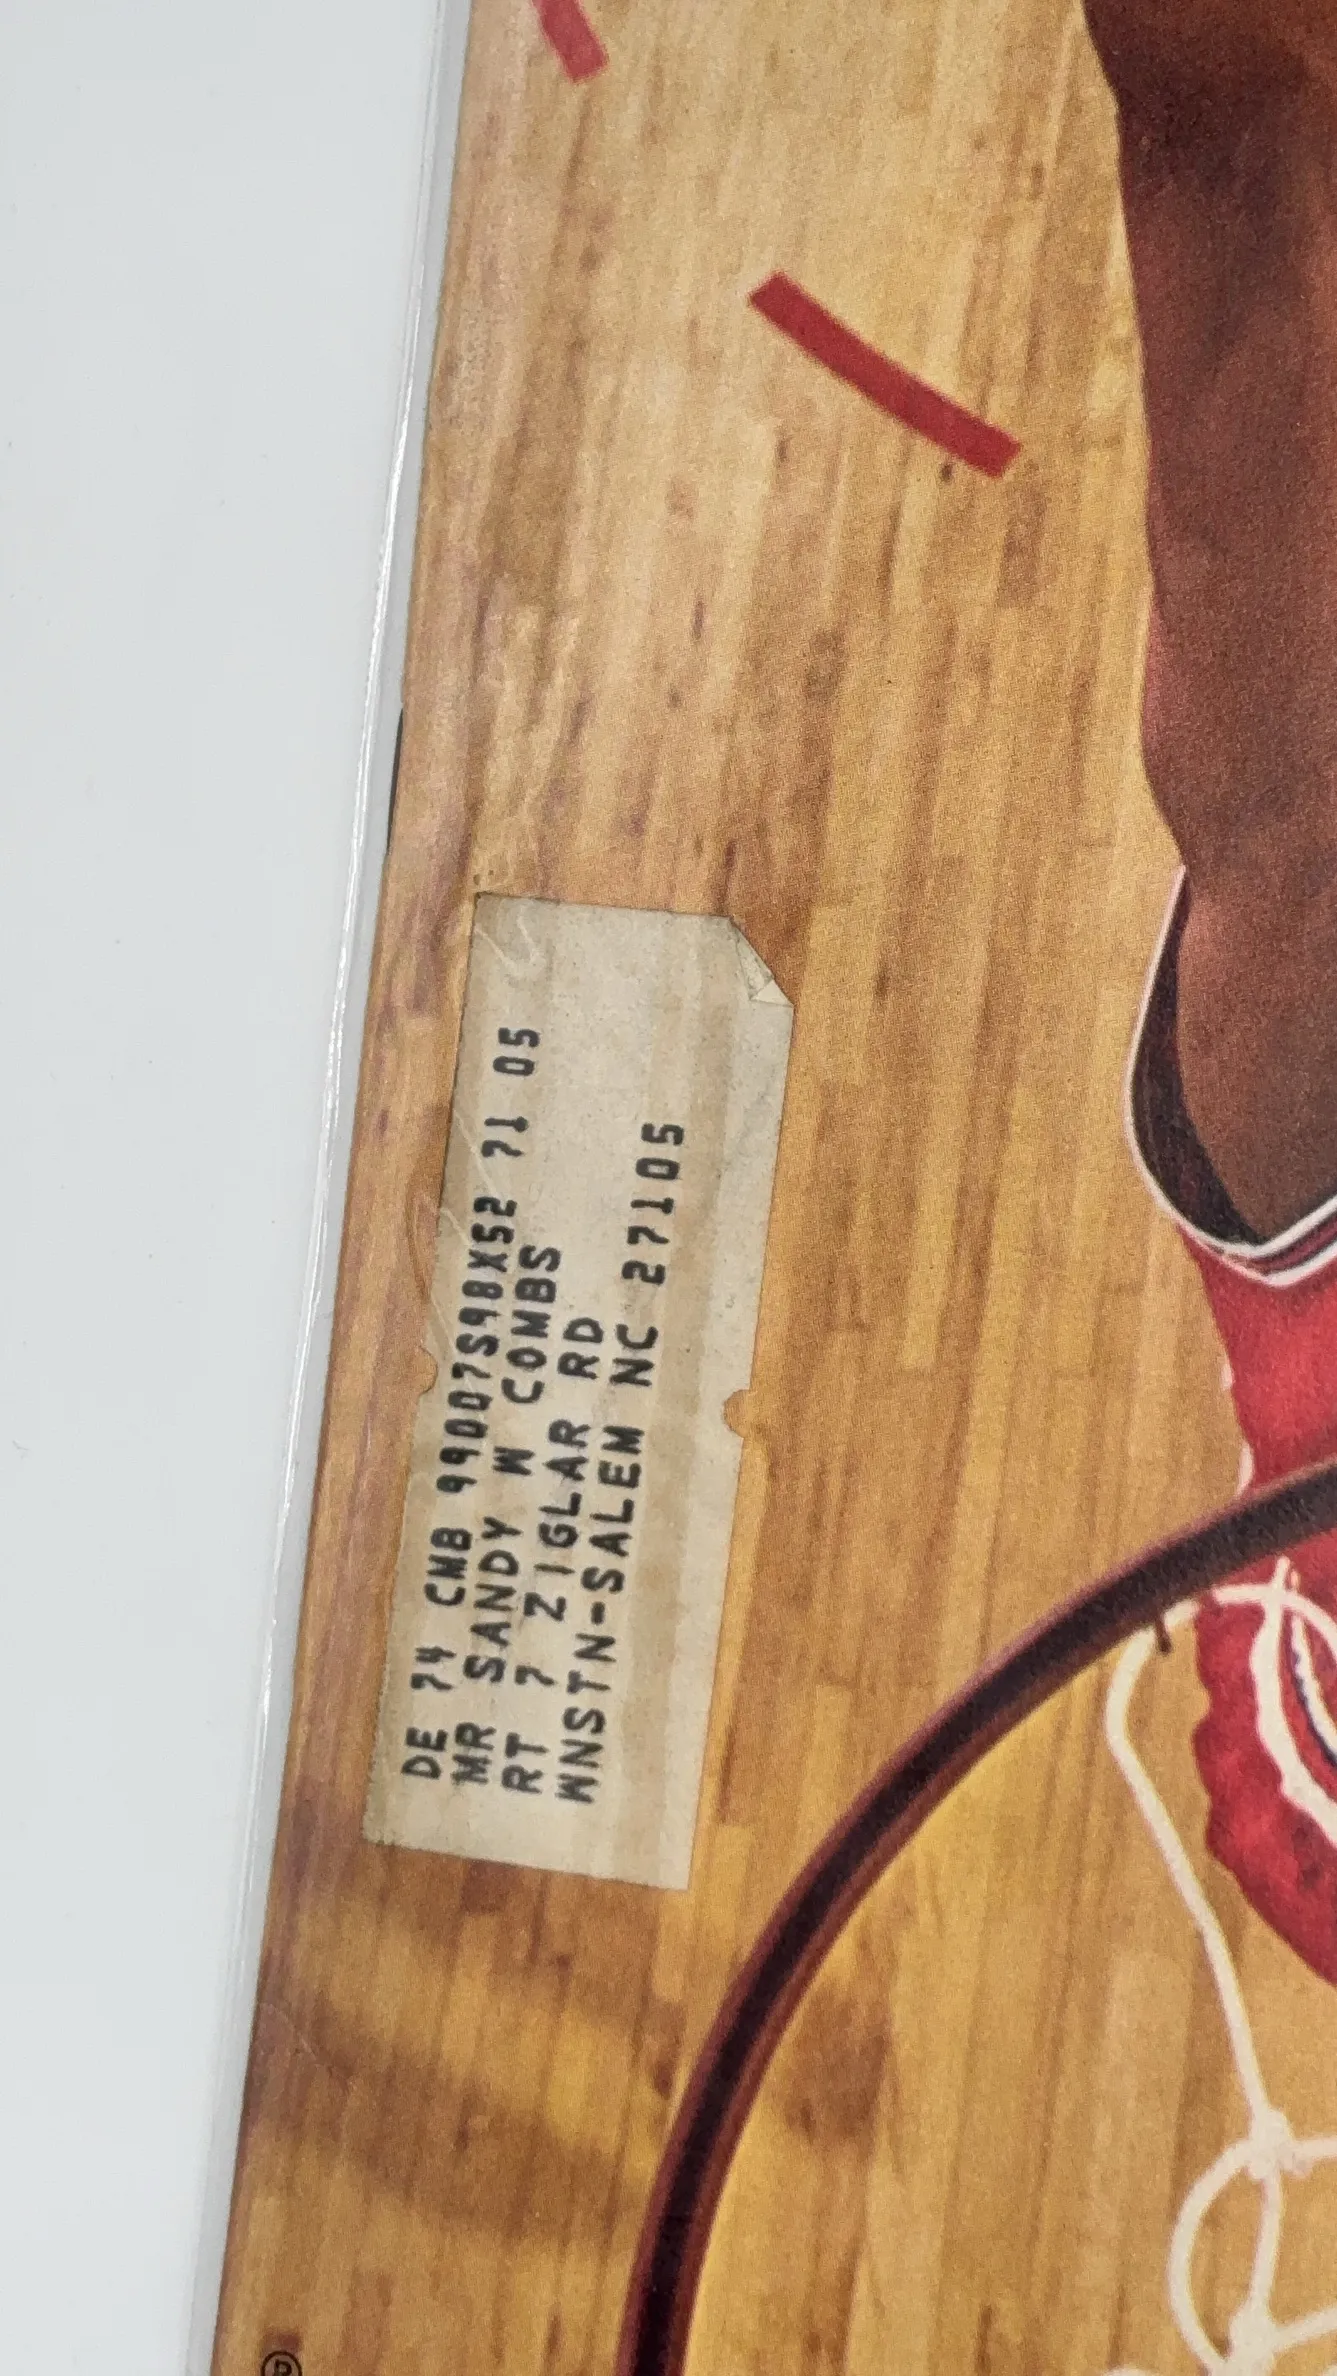 DE 74 CMB 99007S98X52 71 05
MR SANDY W COMBS
RT 7 ZIGLAR RD
WNSTN-SALEM NC 27105
®